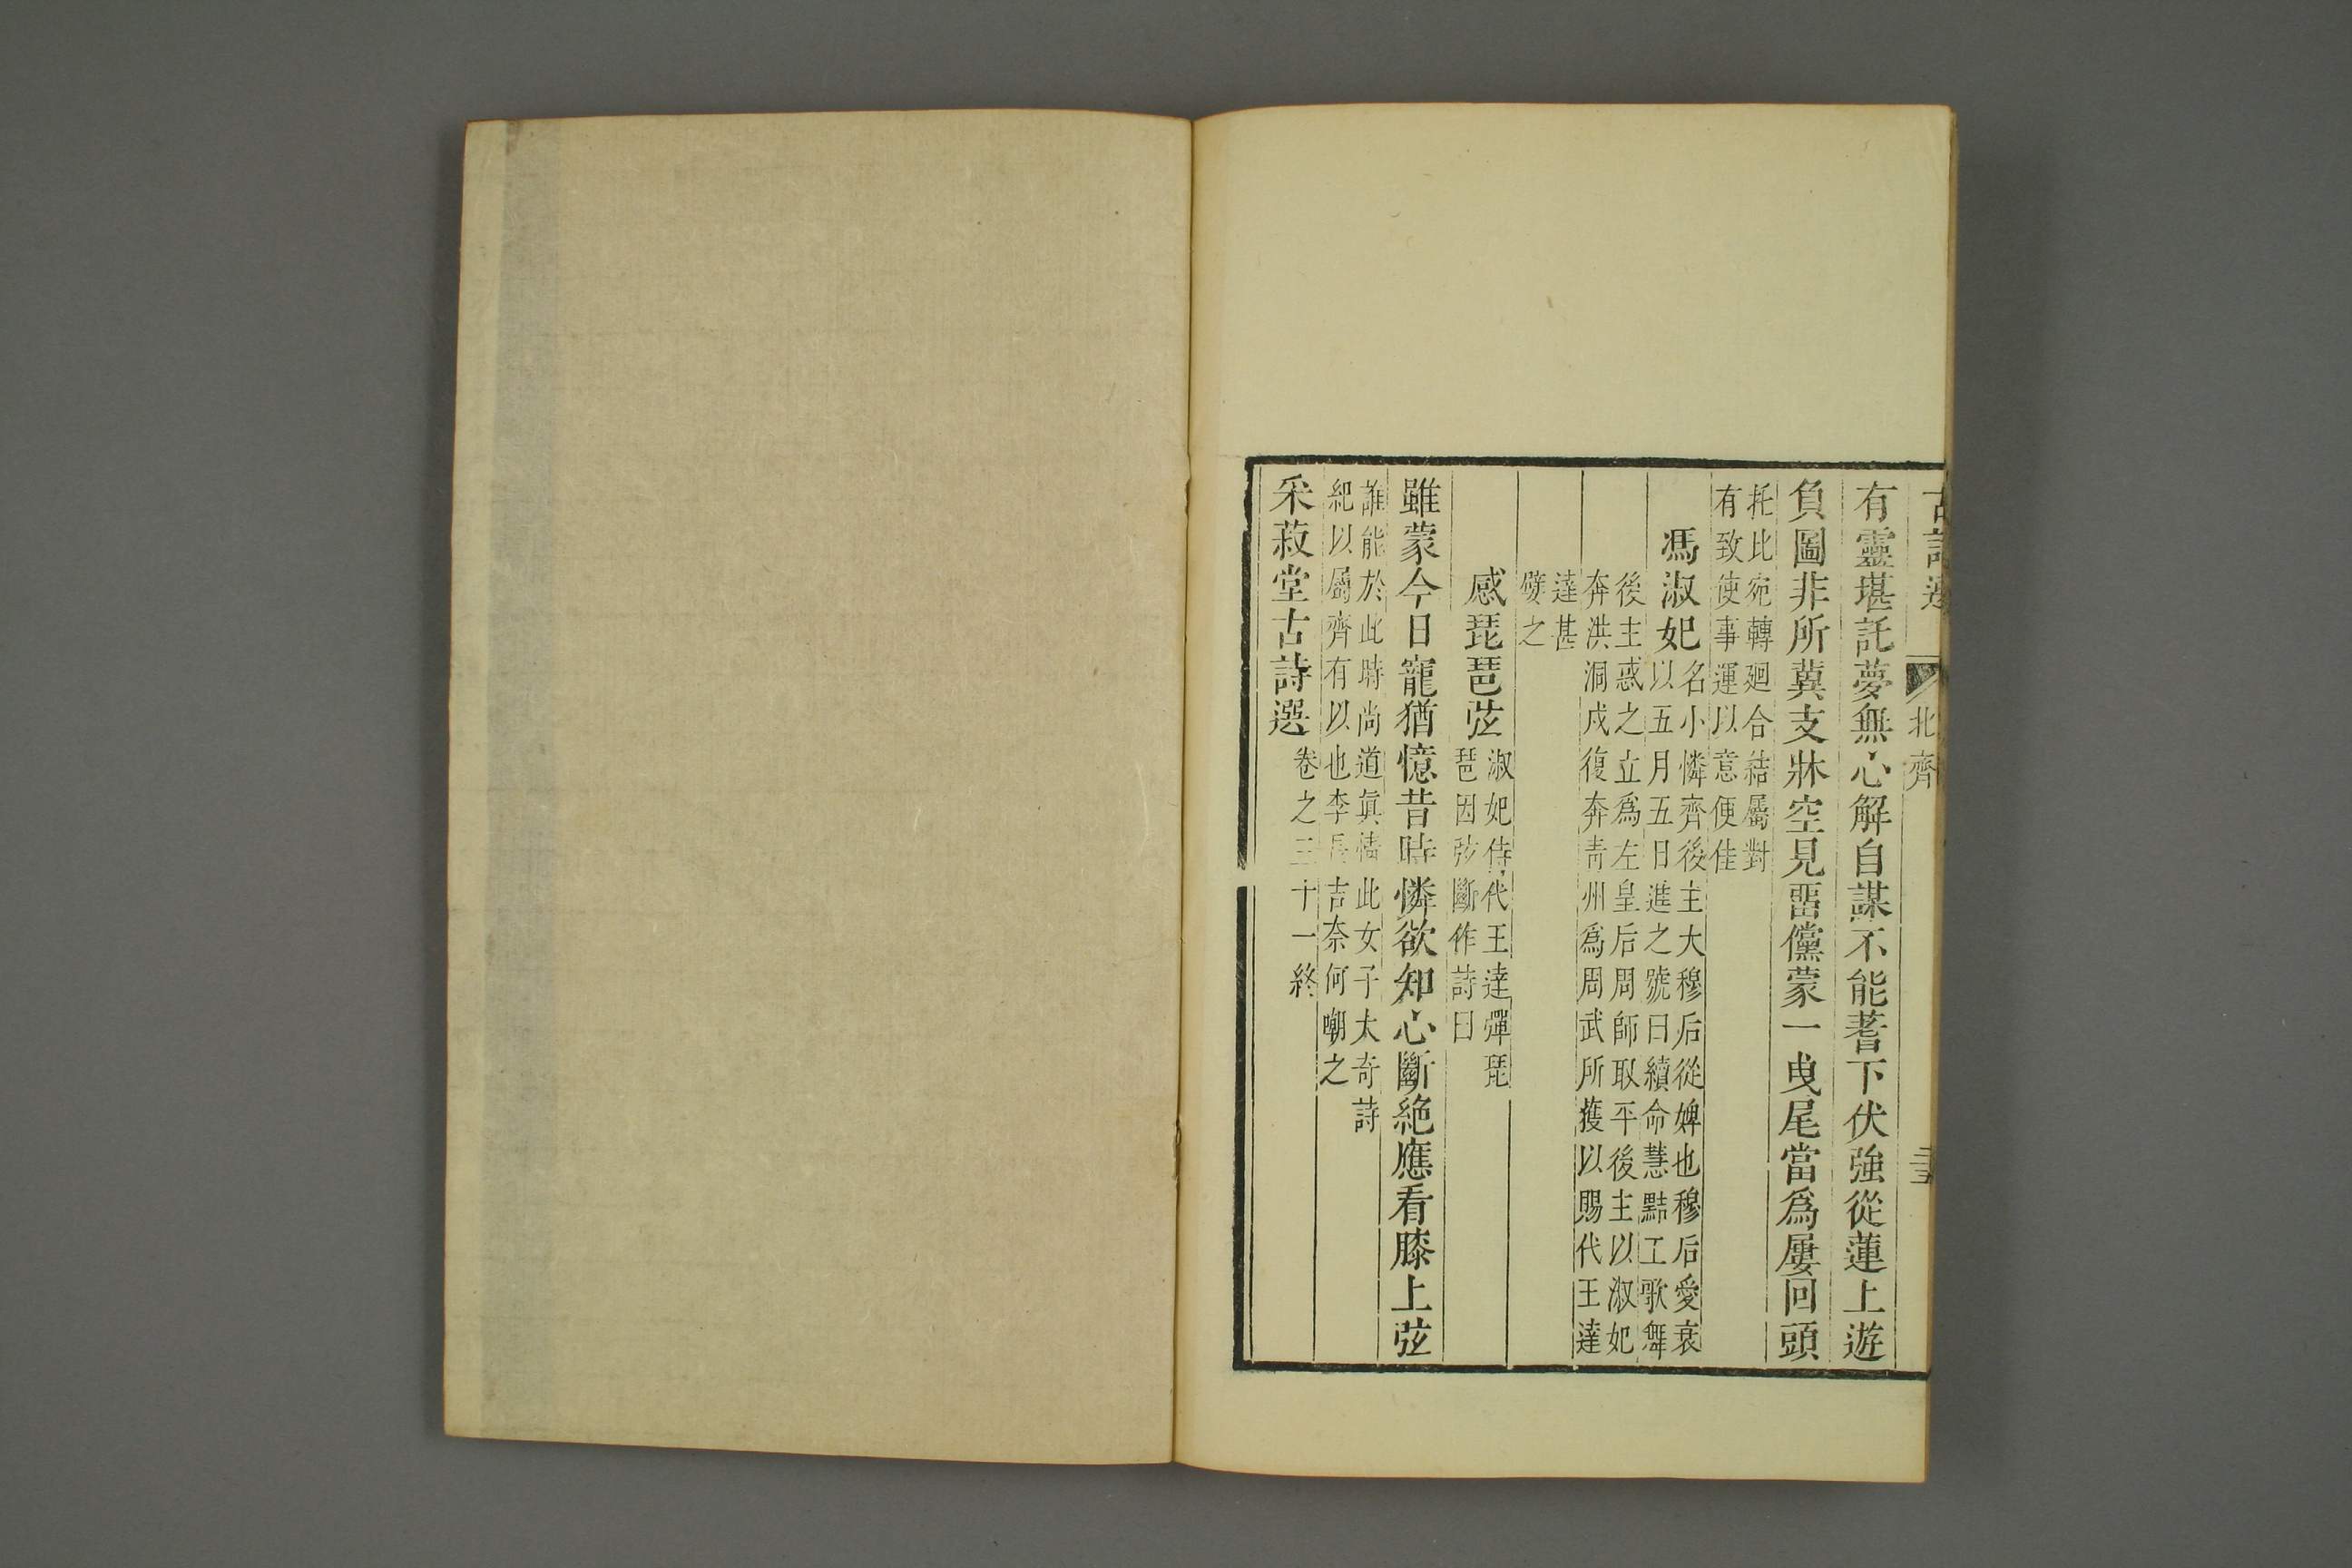 古詩選 北齊
有靈堪託夢無心解自謀不能蓍下伏強從蓮上遊
負圖非所冀支牀空見畱儻蒙一曳尾當爲屢回頭
托比宛轉廻合結屬對
有致使事運以意便佳
馮淑妃
名小憐齊後主大穆后從婢也穆后愛衰
以五月五日進之號曰續命慧黠工歌舞
後主惑之立爲左皇后周師取平後主以淑妃
奔洪洞戍復奔青州爲周武所獲以賜代王達
達甚
嬖之
感琵琶弦
淑妃侍代王達彈琵
琶因弦斷作詩曰
雖蒙今日寵猶憶昔時憐欲知心斷絶應看膝上弦
誰能於此時尚道眞情此女子太奇詩
紀以屬齊有以也李長吉奈何嘲之
采菽堂古詩選
卷之三十一終